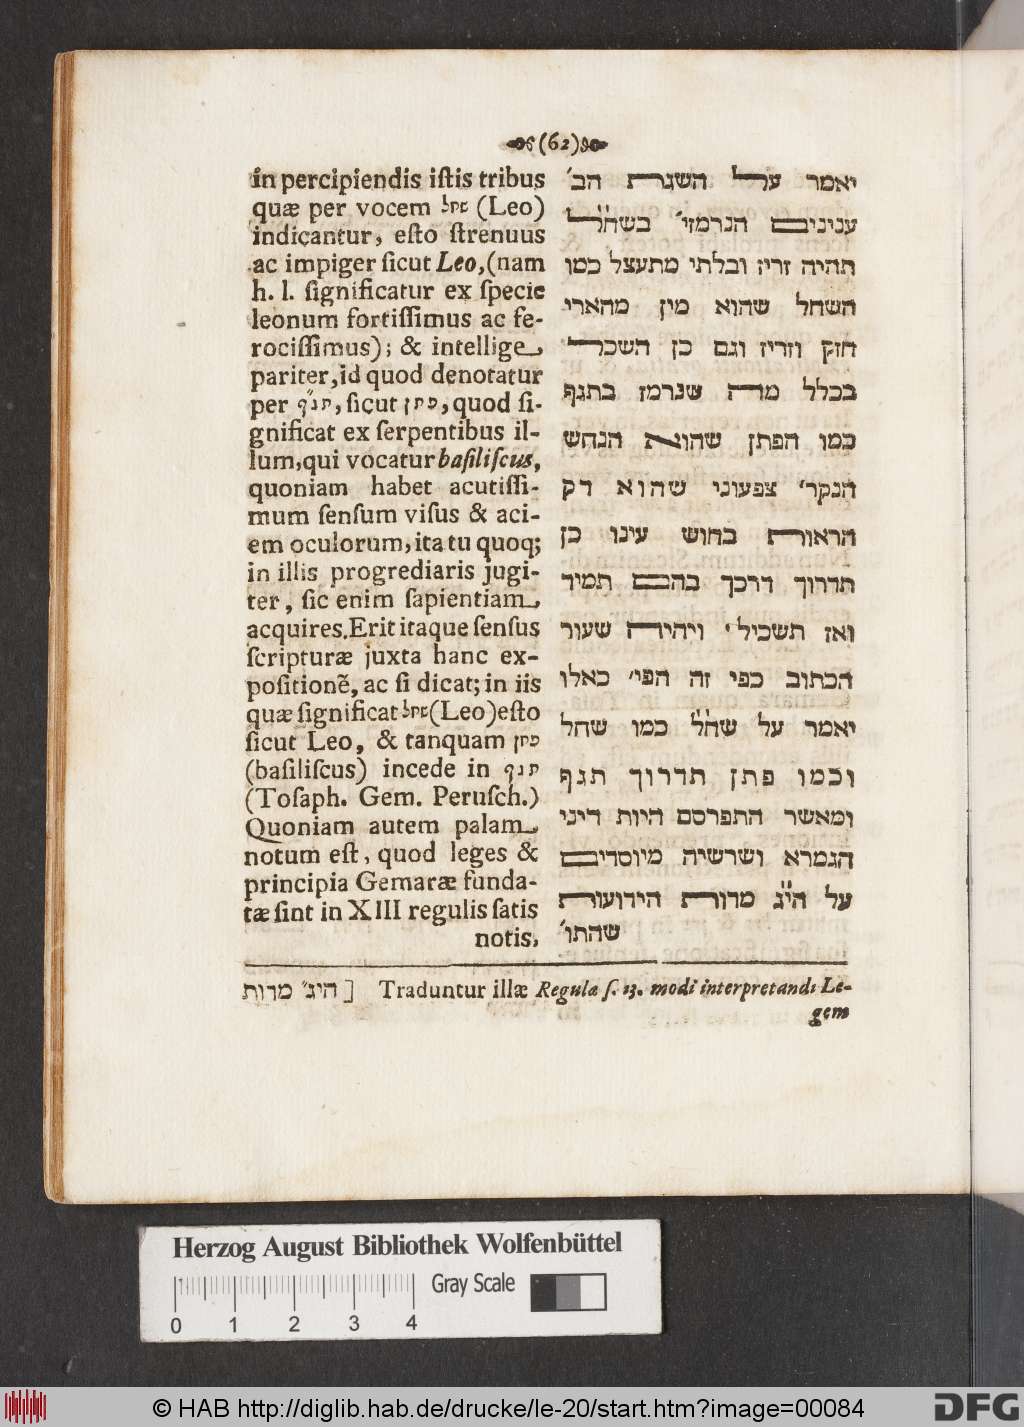 (62)
in percipiendis iſtis tribus
quæ per vocem שחל (Leo)
indicantur, eſto ſtrenuus
ac impiger ſicut Leo, (nam
h. l. ſignificatur ex ſpecie
leonum fortiſſimus ac fe-
rociſſimus); & intellige,
pariter, id quod denotatur
per תנ״ף, ſicut פתן, quod ſi-
gnificat ex ſerpentibus il-
lum, qui vocatur baſiliſcus,
quoniam habet acutiſſi-
mum ſenſum viſus & aci-
em oculorum, ita tu quoq;
in illis progrediaris jugi-
ter, ſic enim ſapientiam,
acquires. Erit itaque ſenſus
ſcripturæ juxta hanc ex-
poſitionẽ, ac ſi dicat; in iis
quæ ſignificat שחל (Leo) eſto
ſicut Leo, & tanquam פתן
(baſiliſcus) incede in תנף
(Toſaph. Gem. Peruſch.)
Quoniam autem palam,
notum eſt, quod leges &
principia Gemaræ funda-
tæ ſint in XIII regulis ſatis
notis,
יאמר על השגת הב׳
ענינים הנרמזי׳ בשח״ל
תהיה זריז ובלתי מתעצל כמו
השחל שהוא מין מהארי
חזק וזריז וגם כן השכל
בכלל מה שנרמז בתנף
כמו הפתן שהוא הנחש
הנקר׳ צפעוני שהוא דק
הראות בחוש עינו כן
תדרוך דרכך בהם תמיד
ואז תשכיל׳ ויהיה שעור
הכתוב כפי זה הפי׳ כאלו
יאמר על שח״ל כמו שחל
וכמו פתן תדרוך תנף
ומאשר התפרסם היות דיני
הגמרא ושרשיה מיוסדים
על הי״ג מדות הידועות
שהתו׳
היג״ מדות ] Traduntur illæ Regula ſ. 13. modi interpretandi Le-
gem
Herzog August Bibliothek Wolfenbüttel
Gray Scale
0 1 2 3 4
© HAB http://diglib.hab.de/drucke/le-20/start.htm?image=00084
DFG